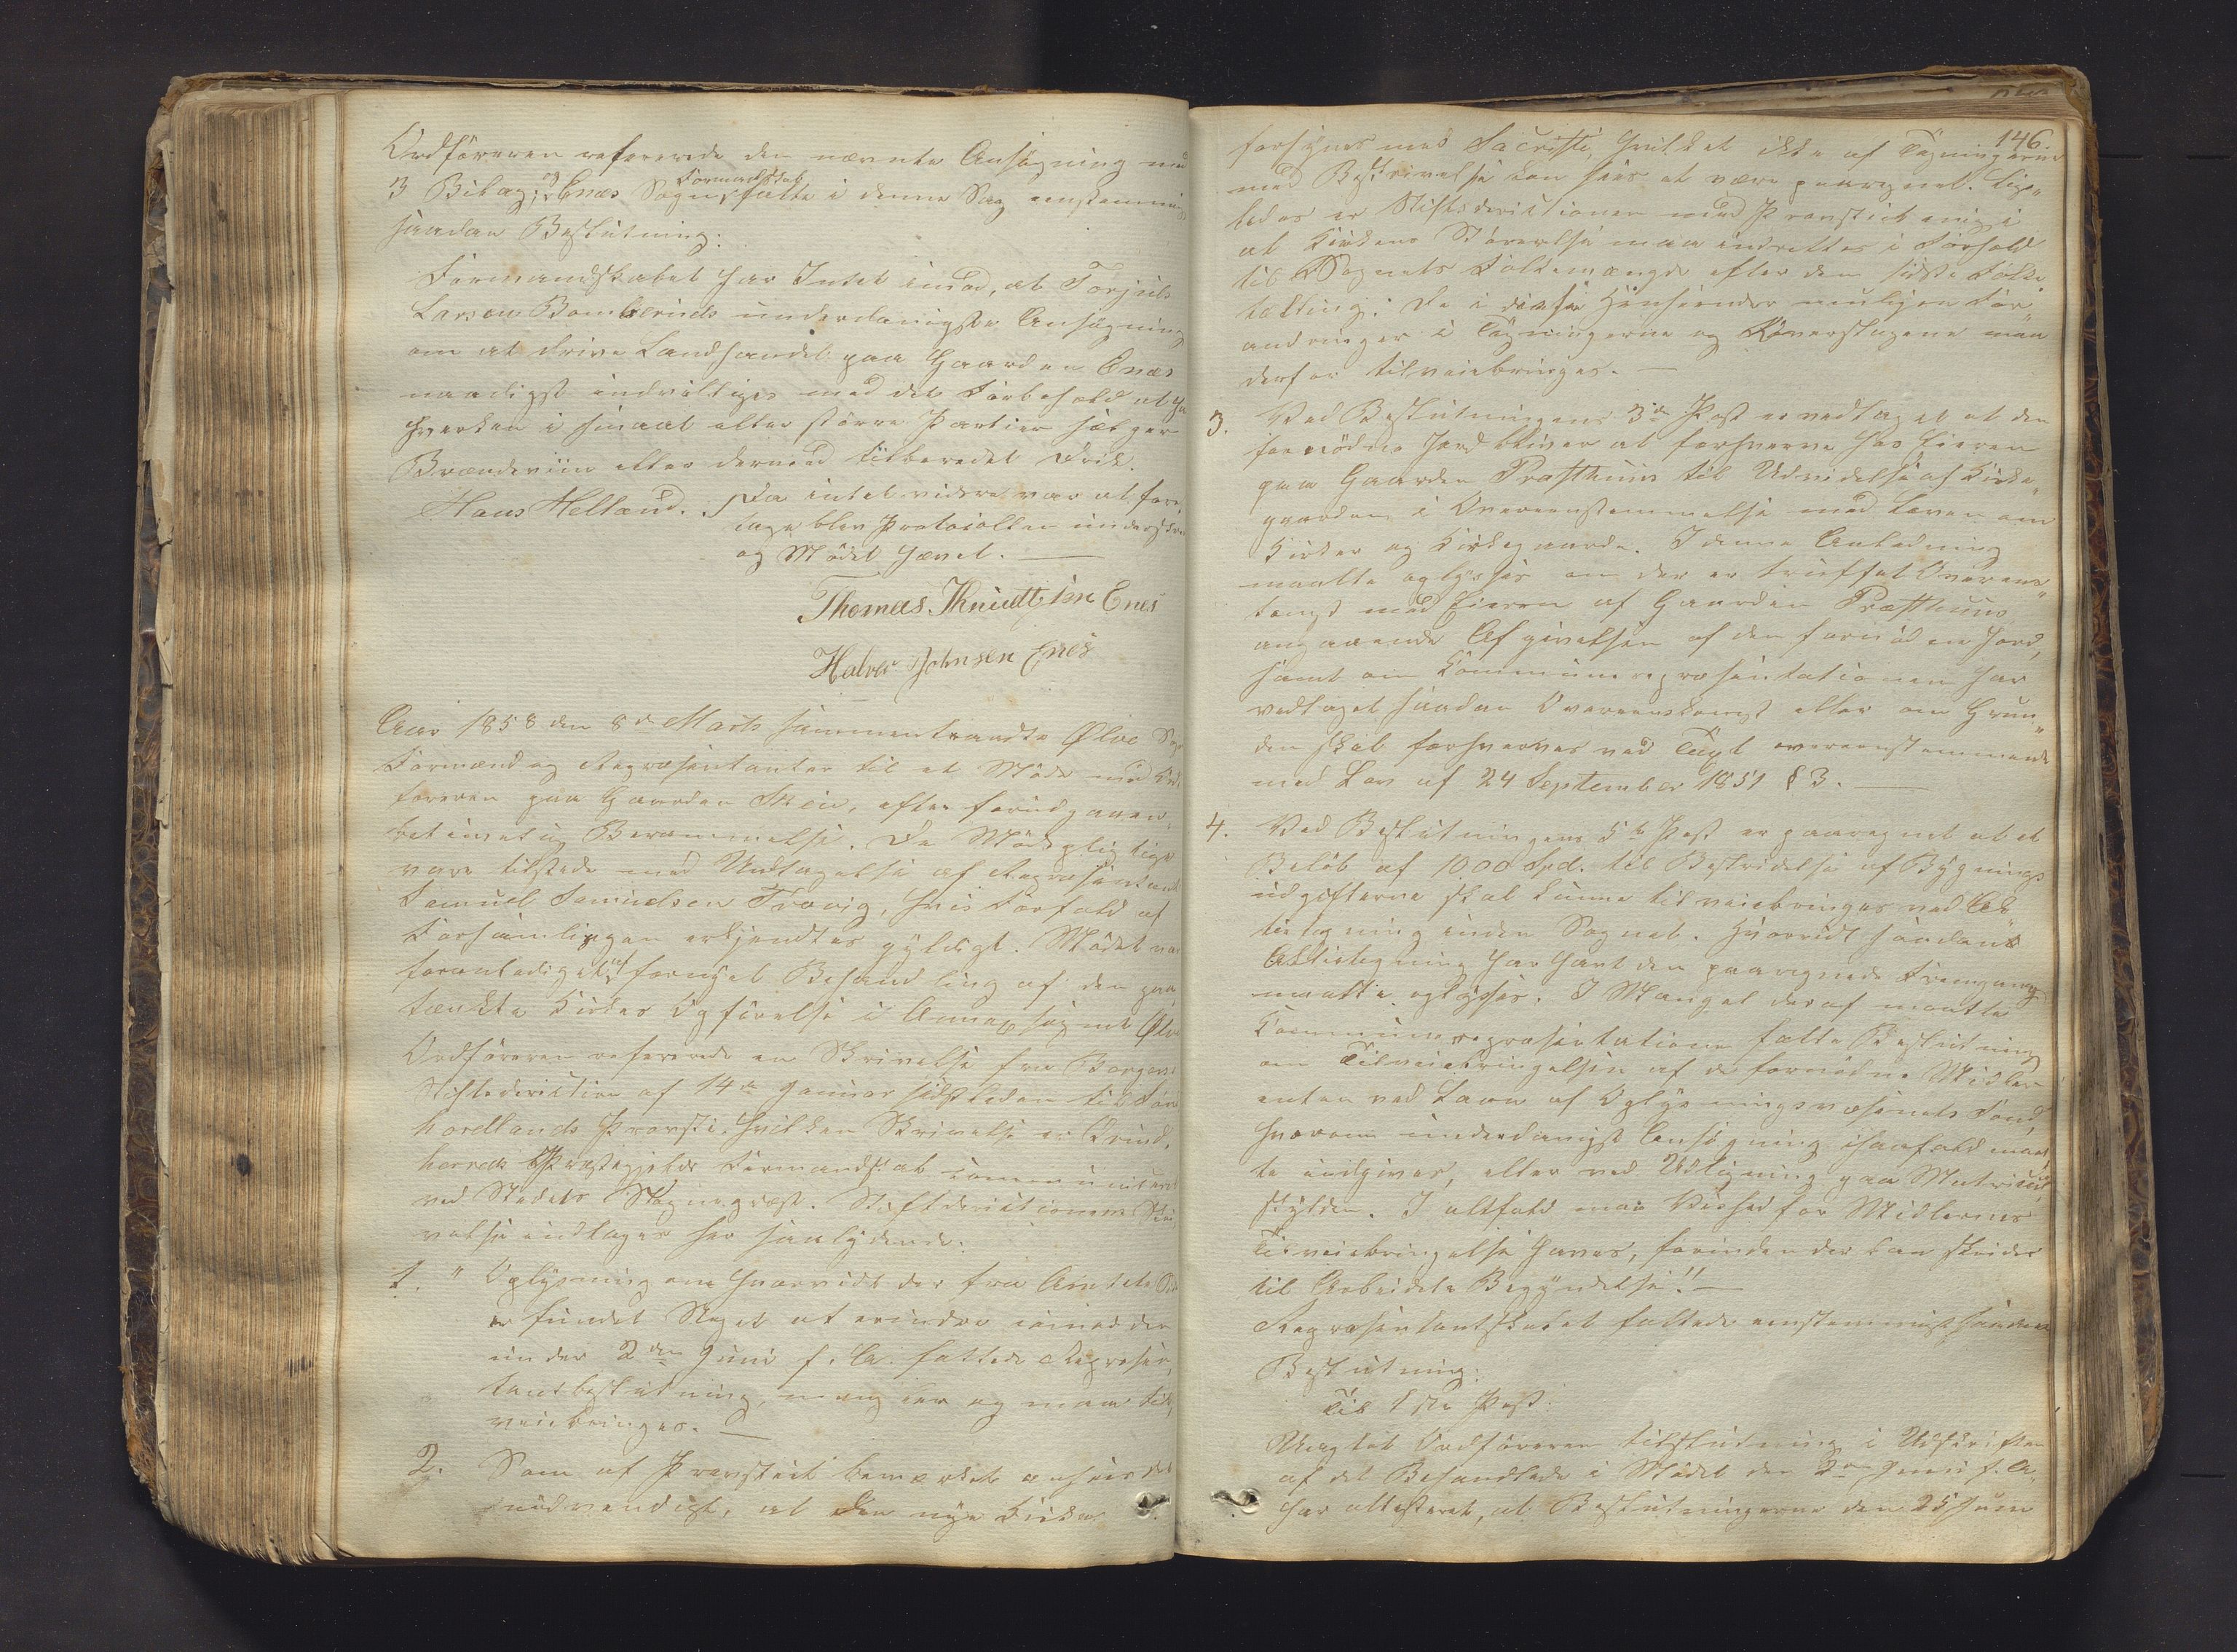 Ordföreren refererede den nævnte Ansögning med
3 Bilag; og Enæs Sogns Formandskab fatte i denne Sag eenstemmig
saadan Beslutning:
Formandskabet har Intet imod, at Torjuls
Larsen Bomblinds underdanigste Ansögning
om at drive Landhandel paa Gaarden Enæs
naadigst indvilliges med det Forbehold at han
hverken i smaat eller större Partier sælger
Brændeviin eller dermed tilberedet Drik.
Hans Helland. Da intet videre var at fore-
tage blev Protocollen underskrevet
og Mödet hævet. —
Thomas Knudtsen Enes
Halvor Johnsen Enes
Aar 1858 den 8de Marts sammentraadte Ølve Sogns
Formænd og Repræsentanter til et Möde med Ord-
föreren paa Gaarden Skeie, efter forudgaaen
betimelig Berammelse. De Mödepligtige
vare tilstede med Undtagelse af Repræsentant
Samuel Samuelsen Trovig, hvis Forfald af
Forsamlingen erkjendtes gyldigt. Mödet var
foranlediget af fornyet Behandling af den paa-
tænkte Kirkes Opförelse i Annexsognet Ølve
Ordföreren refererede en Skrivelse fra Bergens
Stiftsdirektion af 14de Januar sidstleden til Sönd-
hordlands Provsti, hvilken Skrivelse er Qvind-
herreds Præstegjelds Formandskab communiceret
ved Stedets Sognepræst. Stiftsdirektionens Skri-
velse indtages her saalydende:
1. " Oplysning om hvorvidt der fra Amtets Side
er fundet Noget at erindre imod den
under 2den Juni f. A. fattede Repræsen-
tantbeslutning, mangler og maa til-
veiebringes. —
2. Som af Provstiet bemærket ansees det
nödvendigt, at den nye Kirke
146.
forsynes med Sacristi, hvilket ikke af Tegningerne
med Beskrivelse kan sees at være paaregnet. Lige-
ledes er Stiftsdirektionen med Provstiet enig i
at Kirkens Störrelse maa indrettes i Forhold
til Sognets Folkemængde efter den sidste Folke-
tælling. De i disse Henseender muligen For-
andringer i Tegningerne og Overslagene maa
derfor tilveiebringes. —
3. Ved Beslutningens 3die Post er vedtaget at den
fornödne Jord bliver at forhverve hos Eieren
paa Gaarden Præsthuus til Udvidelse af Kirke-
gaarden i Overeensstemmelse med Loven om
Kirker og Kirkegaarde. I denne Anledning
maatte oplyses om der er truffet Overens-
komst med Eieren af Gaarden Præsthuus
angaaende Afgivelsen af den fornödne Jord,
samt om Kommunerepræsentationen har
vedtaget saadan Overeenskomst eller om Grun-
den skal forhverves ved Taxt overeenstemmende
med Lov af 24 September 1851 § 3. —
4. Ved Beslutningens 5te Post er paaregnet at et
Belöb af 1000 Spd. til Bestridelse af Bygnings-
udgifterne skal kunne tilveiebringes ved Ak-
tietegning inden Sognet. Hvorvidt saadan
Aktietegning har havt den paaregnede Fremgang
maatte oplyses. I Mangel deraf maatte
Kommunerepræsentationen fatte Beslutning
om Tilveiebringelsen af de fornödne Midler
enten ved Laan af Oplysningsvæsenets Fond,
hvorom underdanigst Ansögning isaafald maat-
te indgives, eller ved Udligning paa Matricul-
skylden. I altfald maa Vished for Midlernes
Tilveiebringelse haves, forinden der kan skrides
til Arbeidets Begyndelse." —
Repræsentantskabet fattede eenstemmigt saadan
Beslutning:
Til 1ste Post:
Uagtet Ordföreren tilslutning i Udskriften
af det Behandlede i Mödet den 2den Juni f. A.
har attesteret, at Beslutningerne den 25 Juni